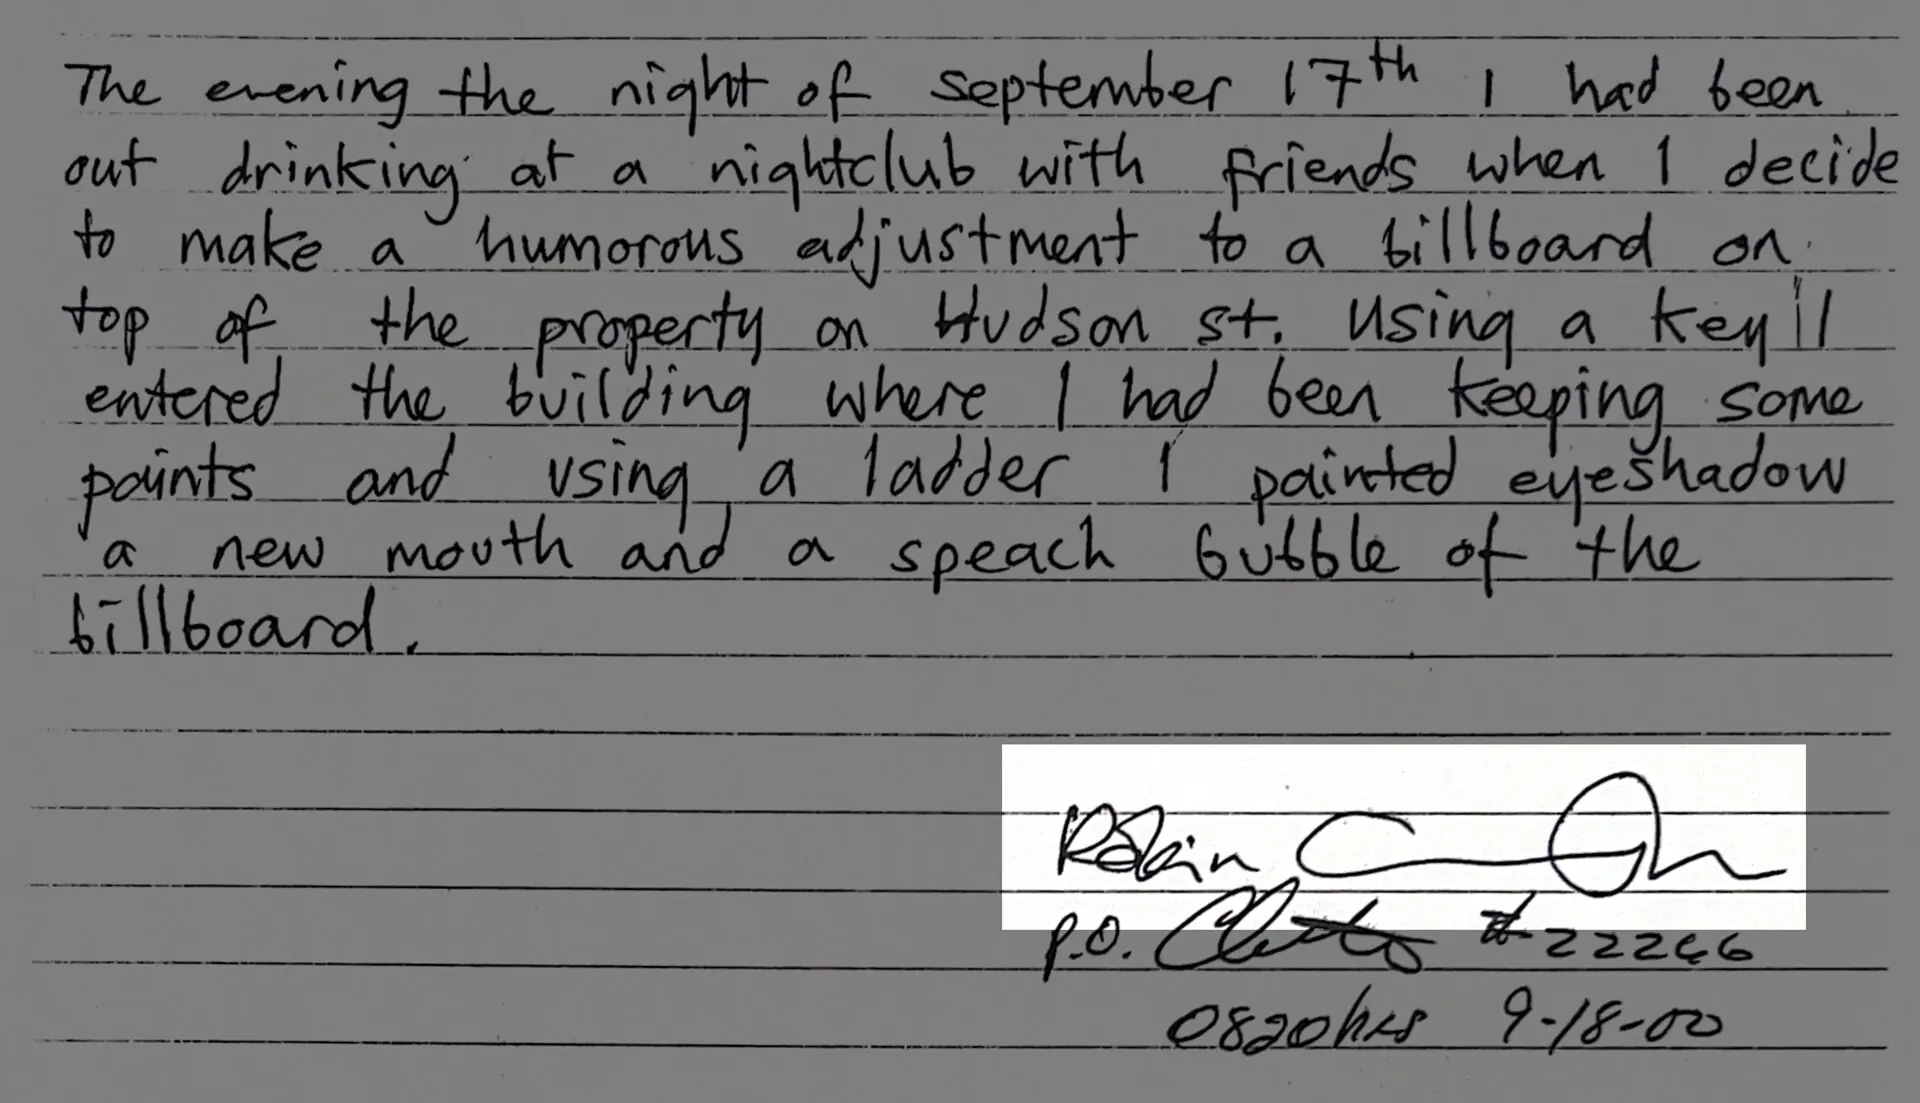 The evening the night of september 17th I had been
out drinking at a nightclub with friends when I decide
to make a humorous adjustment to a billboard on
top of the property on Hudson st. Using a key I
entered the building where I had been keeping some
paints and using a ladder I painted eyeshadow
a new mouth and a speach bubble of the
billboard.
Robin
P.O. #22266
0820hrs 9-18-00